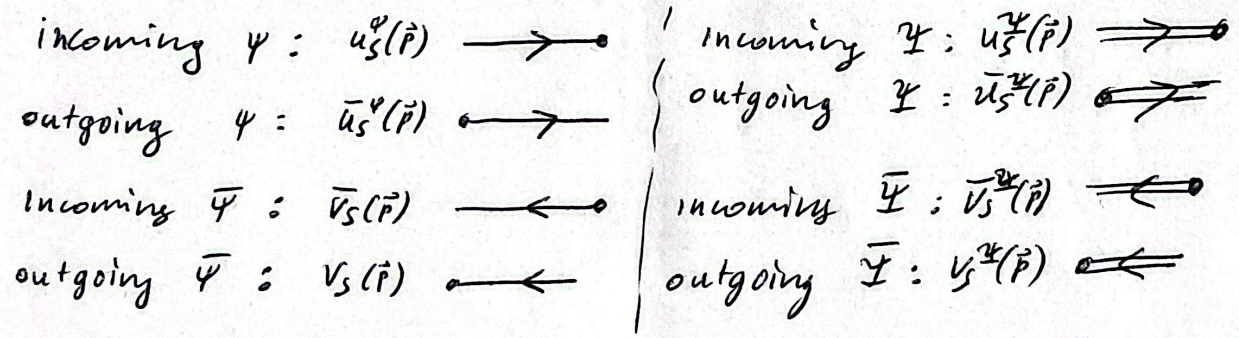 incoming ψ : u_s^ψ(p⃗)
outgoing ψ : ū_s^ψ(p⃗)
Incoming ψ̄ : v̄_s(p⃗)
outgoing ψ̄ : v_s(p⃗)
incoming Ψ : u_s^Ψ(p⃗)
outgoing Ψ : ū_s^Ψ(p⃗)
incoming Ψ̄ : v̄_s^Ψ(p⃗)
outgoing Ψ̄ : v_s^Ψ(p⃗)